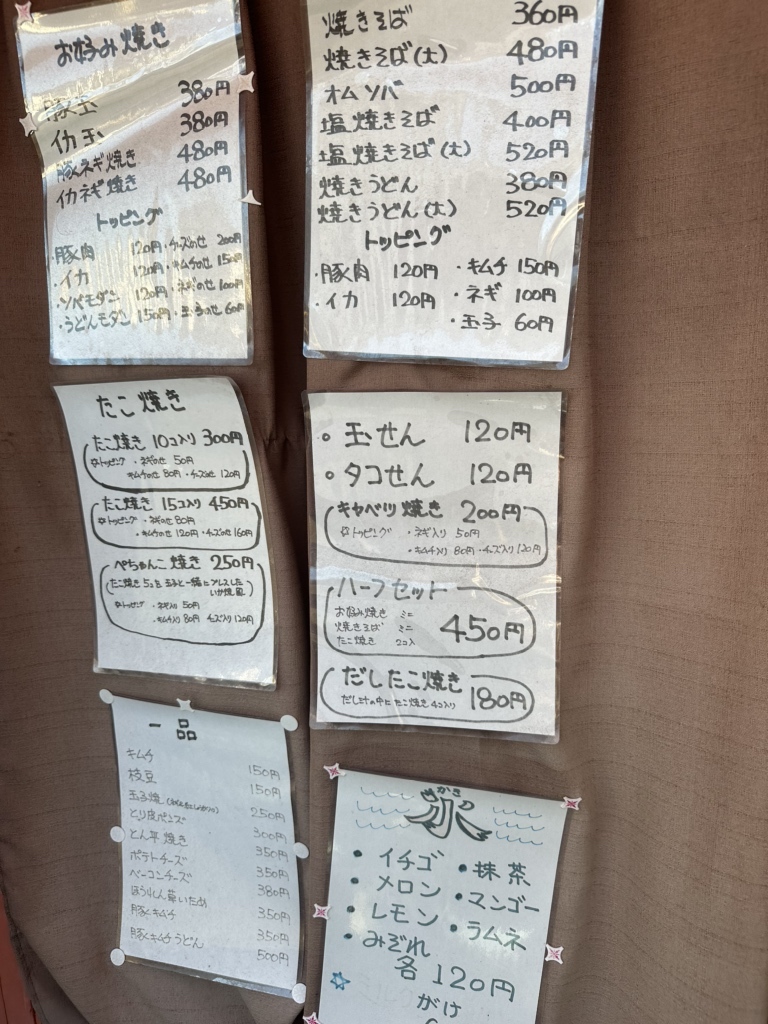 お好み焼き
豚玉 380円
イカ玉 380円
豚ネギ焼き 480円
イカネギ焼き 480円
トッピング
・豚肉 120円 ・チーズのせ 200円
・イカ 120円 ・キムチのせ 150円
・ソバモダン 120円 ・ネギのせ 100円
・うどんモダン 150円 ・玉子のせ 60円
焼きそば 360円
焼きそば(大) 480円
オムソバ 500円
塩焼きそば 400円
塩焼きそば(大) 520円
焼きうどん 380円
焼きうどん(大) 520円
トッピング
・豚肉 120円 ・キムチ 150円
・イカ 120円 ・ネギ 100円
・玉子 60円
たこ焼き
たこ焼き 10コ入り 300円
✡トッピング ・ネギのせ 50円
・キムチのせ 80円 ・チーズのせ 120円
たこ焼き 15コ入り 450円
✡トッピング ・ネギのせ 80円
・キムチのせ 120円 ・チーズのせ 160円
ぺちゃんこ焼き 250円
(たこ焼き5コを玉子と一緒にプレスした
いか焼風)
✡トッピング ・ネギ入り 50円
・キムチ入り 80円 ・チーズ入り 120円
○玉せん 120円
○タコせん 120円
キャベツ焼き 200円
✡トッピング ・ネギ入り 50円
・キムチ入り 80円 ・チーズ入り 120円
ハーフセット
お好み焼き ミニ
焼きそば ミニ 450円
たこ焼き 2コ入
だしたこ焼き
だし汁の中にたこ焼き4コ入り 180円
一品
キムチ 150円
枝豆 150円
玉子焼 250円
とり皮ポンズ 300円
とん平焼き 350円
ポテトチーズ 350円
ベーコンチーズ 380円
ほうれん草いため 350円
豚キムチ 350円
豚キムチうどん 500円
かき
氷
・イチゴ ・抹茶
・メロン ・マンゴー
・レモン ・ラムネ
・みぞれ
各120円
がけ